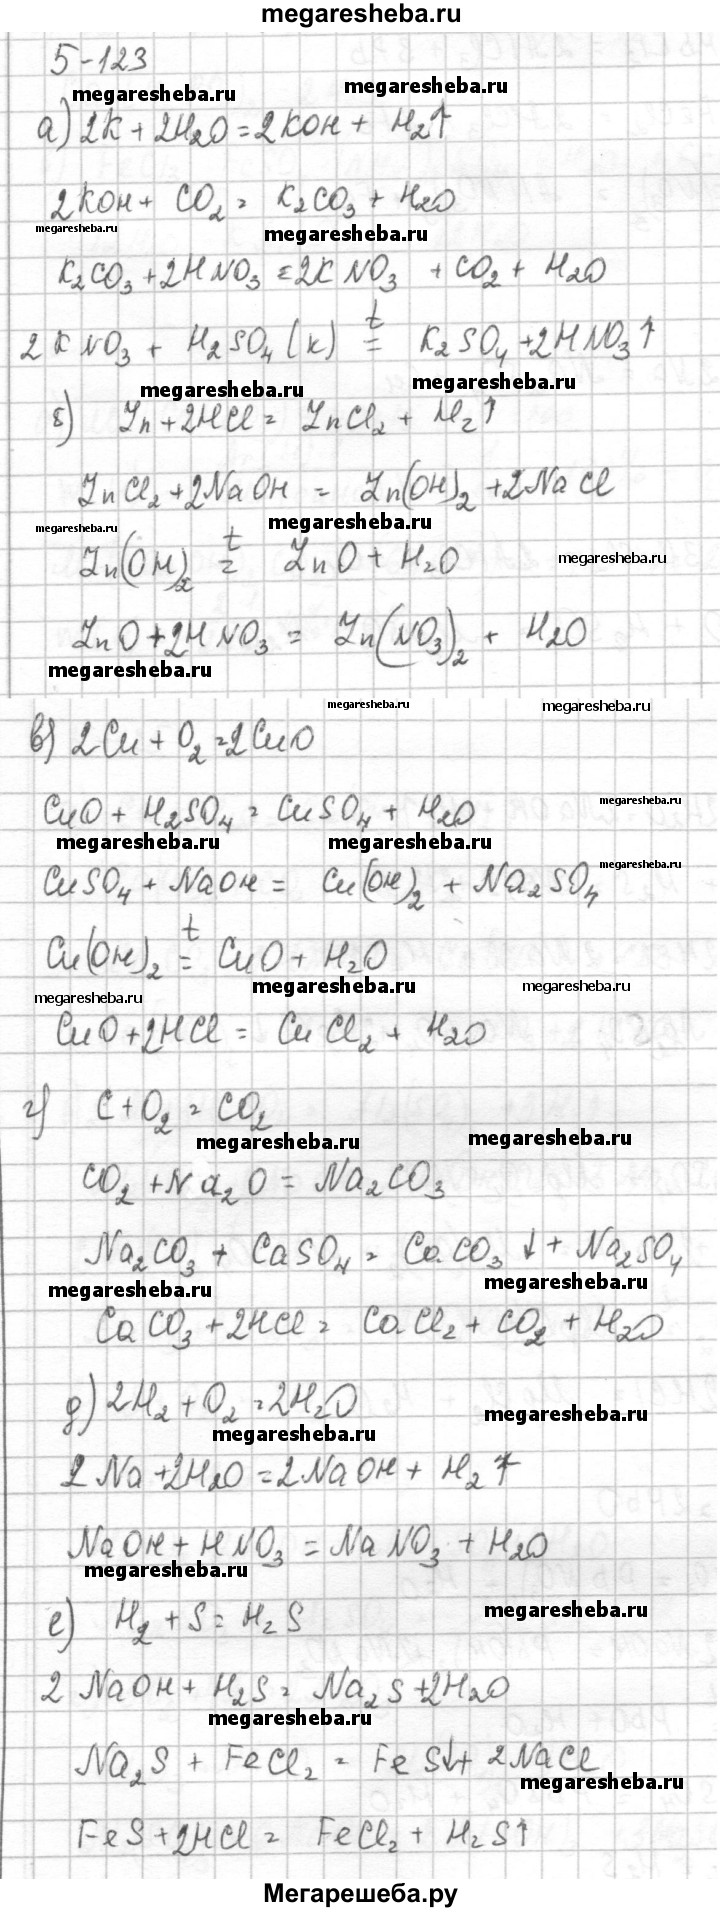 megaresheba.ru
5-123
megaresheba.ru megaresheba.ru
а) 2K + 2H₂O = 2KOH + H₂↑
2KOH + CO₂ = K₂CO₃ + H₂O
megaresheba.ru megaresheba.ru
K₂CO₃ + 2HNO₃ = 2KNO₃ + CO₂ + H₂O
t
2KNO₃ + H₂SO₄(к) = K₂SO₄ + 2HNO₃↑
megaresheba.ru megaresheba.ru
б) Zn + 2HCl = ZnCl₂ + H₂↑
ZnCl₂ + 2NaOH = Zn(OH)₂ + 2NaCl
megaresheba.ru megaresheba.ru
t
Zn(OH)₂ = ZnO + H₂O
megaresheba.ru
ZnO + 2HNO₃ = Zn(NO₃)₂ + H₂O
megaresheba.ru
megaresheba.ru megaresheba.ru
в) 2Cu + O₂ = 2CuO
megaresheba.ru
CuO + H₂SO₄ = CuSO₄ + H₂O
megaresheba.ru megaresheba.ru
megaresheba.ru
CuSO₄ + NaOH = Cu(OH)₂ + Na₂SO₄
t
Cu(OH)₂ = CuO + H₂O
megaresheba.ru megaresheba.ru megaresheba.ru
CuO + 2HCl = CuCl₂ + H₂O
г) C + O₂ = CO₂
megaresheba.ru megaresheba.ru
CO₂ + Na₂O = Na₂CO₃
Na₂CO₃ + CaSO₄ = CaCO₃↓ + Na₂SO₄
megaresheba.ru megaresheba.ru
CaCO₃ + 2HCl = CaCl₂ + CO₂ + H₂O
д) 2H₂ + O₂ = 2H₂O
megaresheba.ru megaresheba.ru
2Na + 2H₂O = 2NaOH + H₂↑
NaOH + HNO₃ = NaNO₃ + H₂O
megaresheba.ru
е) H₂ + S = H₂S
megaresheba.ru
2NaOH + H₂S = Na₂S + 2H₂O
megaresheba.ru
Na₂S + FeCl₂ = FeS↓ + 2NaCl
megaresheba.ru
FeS + 2HCl = FeCl₂ + H₂S↑
Мегарешеба.ру